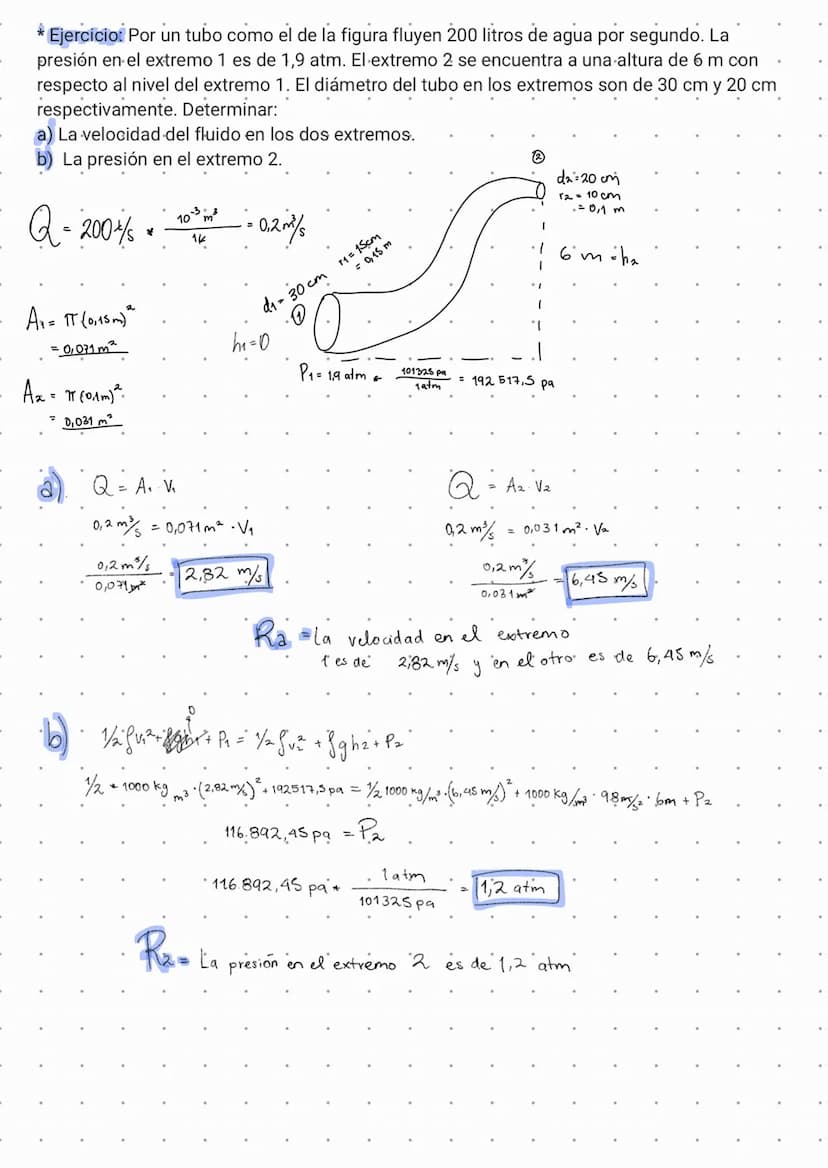 * Ejercicio: Por un tubo como el de la figura fluyen 200 litros de agua por segundo. La
presión en el extremo 1 es de 1,9 atm. El extremo 2 se encuentra a una altura de 6 m con
respecto al nivel del extremo 1. El diámetro del tubo en los extremos son de 30 cm y 20 cm
respectivamente. Determinar:
a) La velocidad del fluido en los dos extremos.
b) La presión en el extremo 2.
②
d2=20 cm
r2=10cm
=0,1 m
6 m=h2
Q = 200 l/s * 10⁻³ m³ / 1l = 0,2 m³/s
r1=15cm
=0,15 m
d1=30cm
①
h1=0
A1= π(0,15m)²
= 0,071 m²
P1= 1,9 atm * 101325 pa / 1atm = 192 517,5 pa
A2 = π(0,1m)²
= 0,031 m²
a) Q = A1 · V1
Q = A2 · V2
0,2 m³/s = 0,071 m² · V1
0,2 m³/s = 0,031 m² · V2
0,2 m³/s / 0,071 m² = 2,82 m/s
0,2 m³/s / 0,031 m² = 6,45 m/s
Ra = La velocidad en el extremo
1 es de 2,82 m/s y en el otro es de 6,45 m/s
b) 1/2 ρv1² + ρgh1 + P1 = 1/2 ρv2² + ρgh2 + P2
0
1/2 * 1000 kg/m³ · (2,82 m/s)² + 192517,5 pa = 1/2 1000 kg/m³ · (6,45 m/s)² + 1000 kg/m³ · 9.8 m/s² · 6m + P2
116.892,45 pa = P2
116.892,45 pa * 1atm / 101325 pa = 1,2 atm
R2 = La presión en el extremo 2 es de 1,2 atm